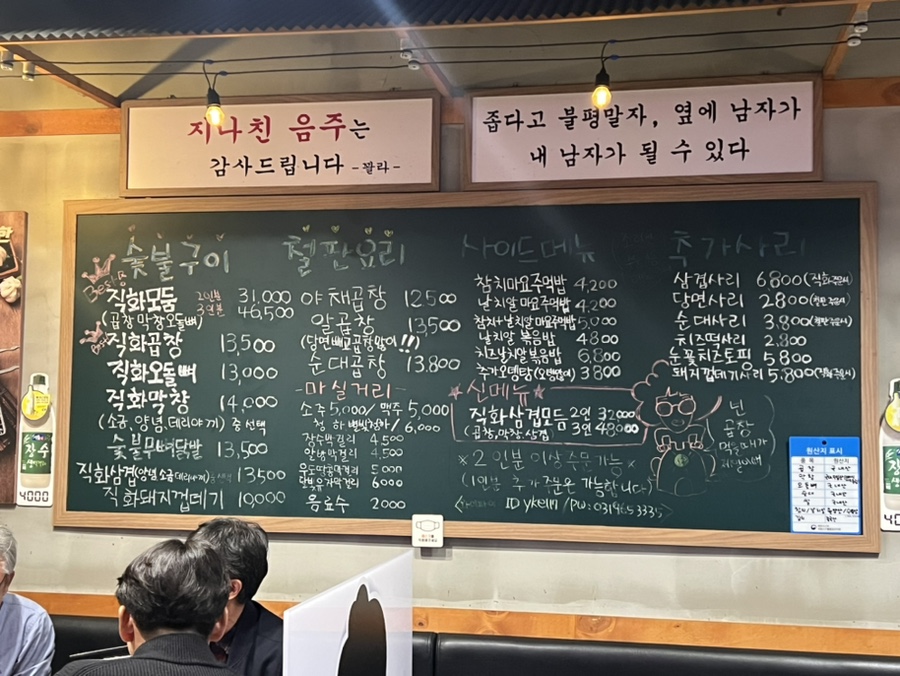 지나친 음주는
감사드립니다 -꽐라-
좁다고 불평말자, 옆에 남자가
내 남자가 될 수 있다
숯불구이
Best
직화모둠 2인분 31,000
3인분 46,500
(곱창,막창,오돌뼈)
Best
직화곱창 13,500
직화오돌뼈 13,000
직화막창 14,000
(소금, 양념, 데리야끼) 중 선택
숯불무뼈닭발 13,500
직화삼겹 13500
직화돼지껍데기 10,000
철판요리
야채곱창 12500
알곱창 13500
순대곱창 13,800
-마실거리-
소주 5,000/ 맥주 5,000
6,000
장수막걸리 4,500
알밤막걸리 4,500
5000
6000
음료수 2000
사이드메뉴
참치마요주먹밥 4,200
날치알마요주먹밥 4,200
참치+날치알마요주먹밥 5,000
날치알 볶음밥 4800
치즈날치알볶음밥 6,800
추가오뎅탕 3800
신메뉴
직화삼겹모듬 2인 32000
(곱창,막창,삼겹) 3인 48000
※2인분 이상 주문가능※
(1인분 추가주문은 가능합니다)
추가사리
삼겹사리 6,800
당면사리 2800
순대사리 3,800
치즈떡사리 2,800
눈꽃치즈토핑 5800
돼지껍데기사리 5,800
넌
곱창
먹을때가
제일이뻐
원산지 표시
장수
4000